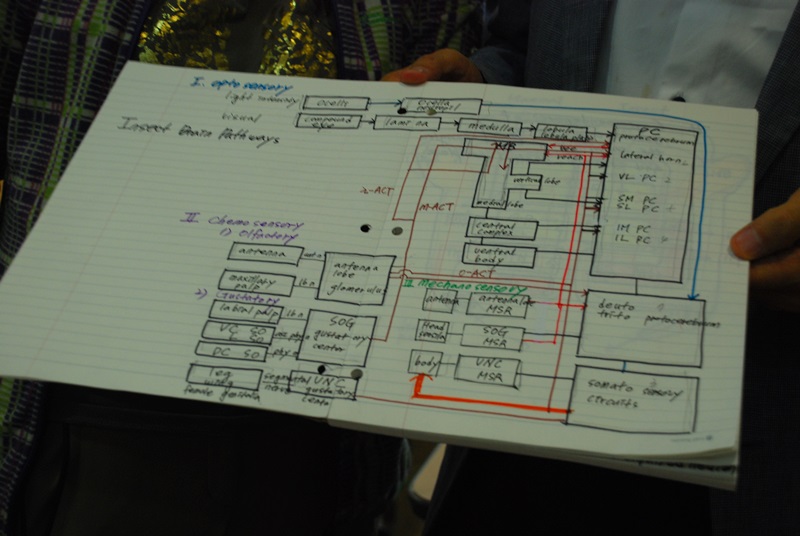 Insect Brain Pathways
I. opto sensory
light intensity
ocelli
ocella
visual
compound eye
lamina
medulla
lobula
PC
protocerebrum
lateral horn
VL PC
SM PC
SL PC
IM PC
IL PC
vertical lobe
medial lobe
central complex
ventral body
m-ACT
o-ACT
II Chemosensory
1) Olfactory
antenna
maxillary palp
lbn
antenna lobe glomerulus
2) Gustatory
labial palp
lbn
SOG gustatory center
VC SO
PC SO
leg
wing
female genitalia
segmental nerves
VNC gustatory center
III mechanosensory
antenna
antennal lobe MSR
Head
SOG MSR
body
VNC MSR
deuto
trito
protocerebrum
somato sensory circuits